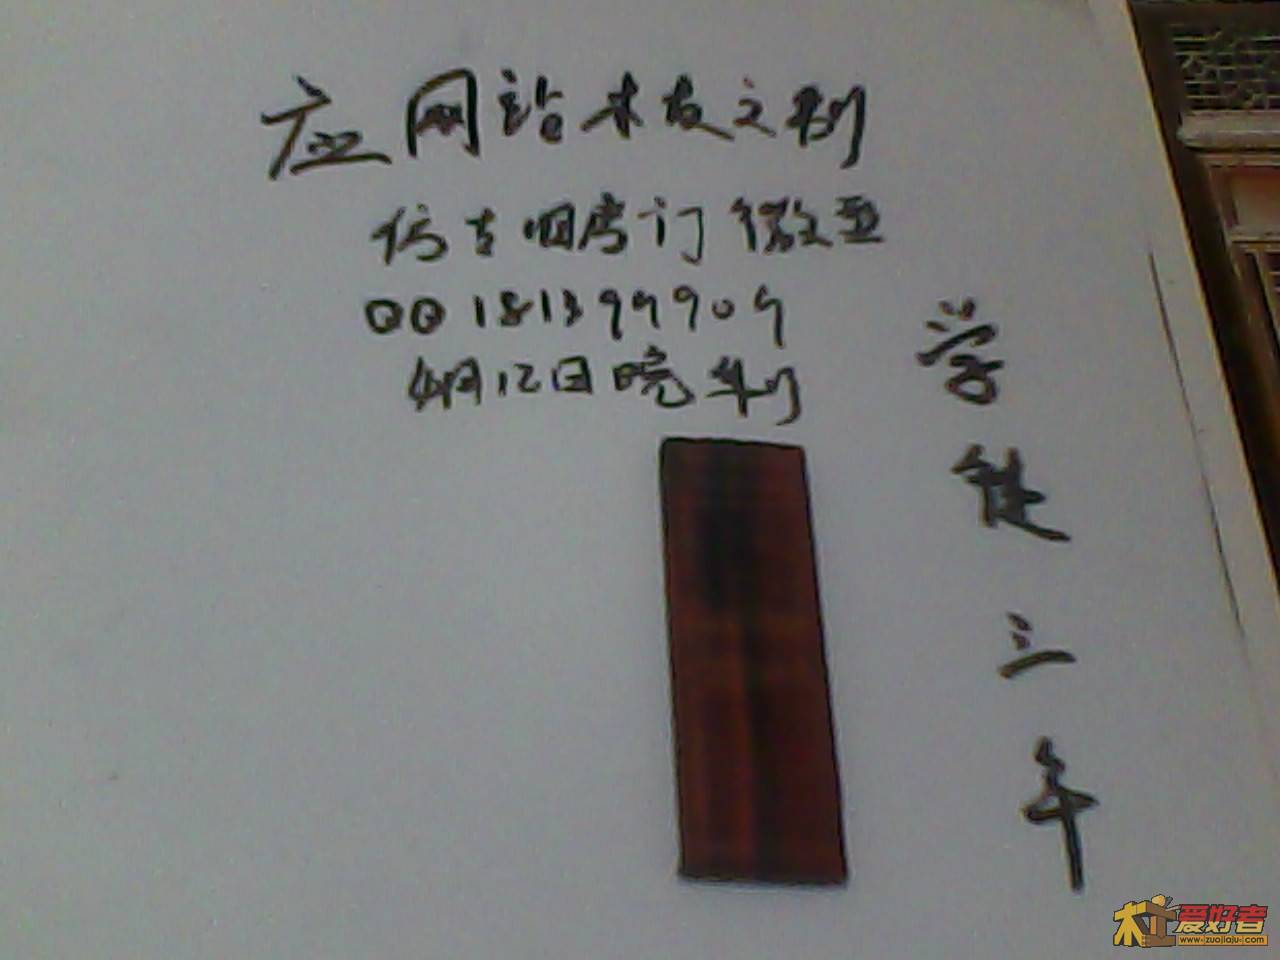 应网站木友之利
仿古烟房订微型
QQ181399909
4月12日晚制
学徒三年
木工爱好者
www.zuojiaju.com